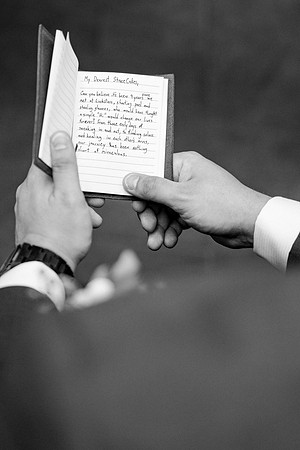 My Dearest
Can you believe it's been 4 years since we
met at
shooting pool and
stealing glances, who would have thought
a simple "Hi" would change our lives
forever? From those early days of
sneaking in and out, to finding solace
and healing in each other's arms,
our journey has been nothing
short of miraculous.